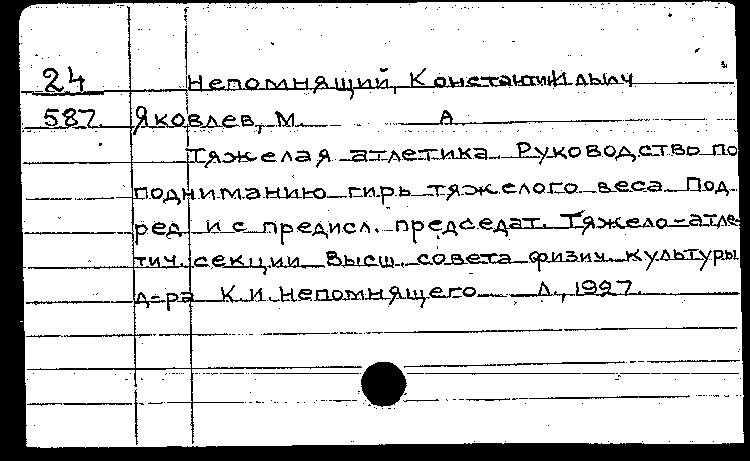 24 Непомнящий, Константин Ильич
587. Яковлев, М. А
Тяжелая атлетика Руководство по
подниманию гирь тяжелого веса. Под.
ред и с предисл. председат. Тяжело-атле-
тич. секции Высш. совета физич. культуры
д-ра К.И. Непомнящего Л., 1927.